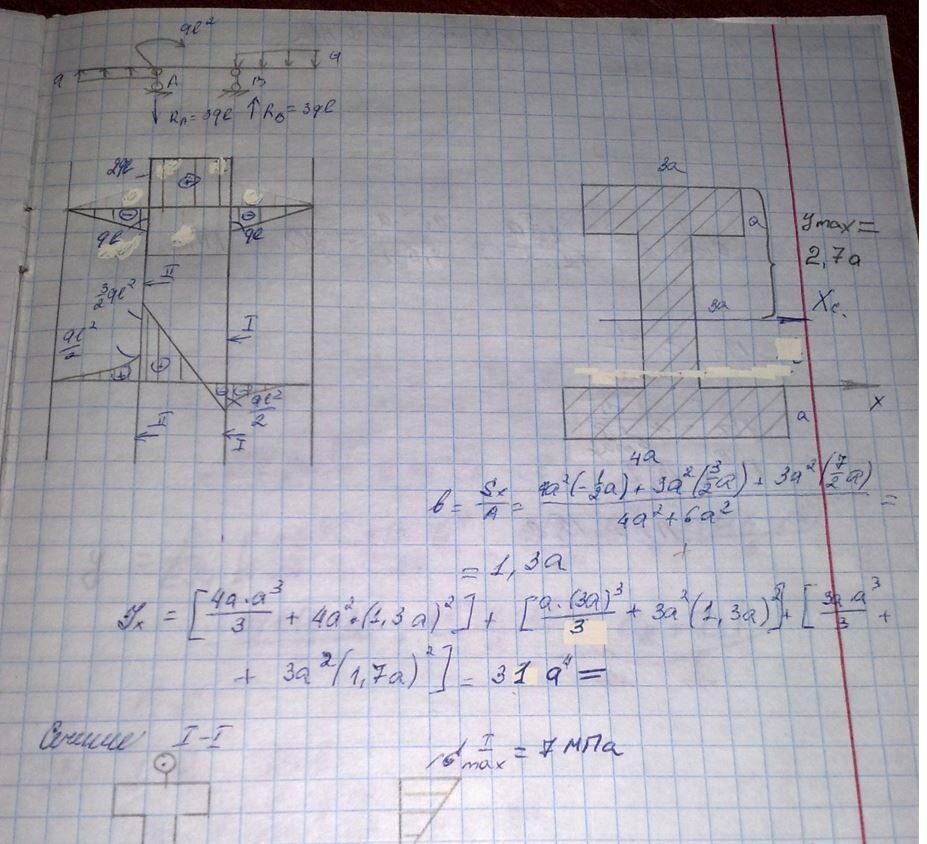 ql²
q
q
A
B
R_A = 3ql
R_B = 3ql
2ql
⊕
⊖
⊖
ql
ql
II
3/2 ql²
I
ql²/2
⊕
⊕
⊖
ql²/2
II
I
3a
a
y max =
2,7a
3a
Xc.
x
a
4a
b = Sx/A = (4a²(-1/2 a) + 3a²(3/2 a) + 3a²(7/2 a))/(4a² + 6a²) =
= 1,3a
Jx = [4a·a³/3 + 4a²·(1,3a)²] + [a·(3a)³/3 + 3a²(1,3a)²] + [3a·a³/3 +
+ 3a²(1,7a)²] = 31 a⁴ =
Сечение I-I
σ I max = 7 МПа